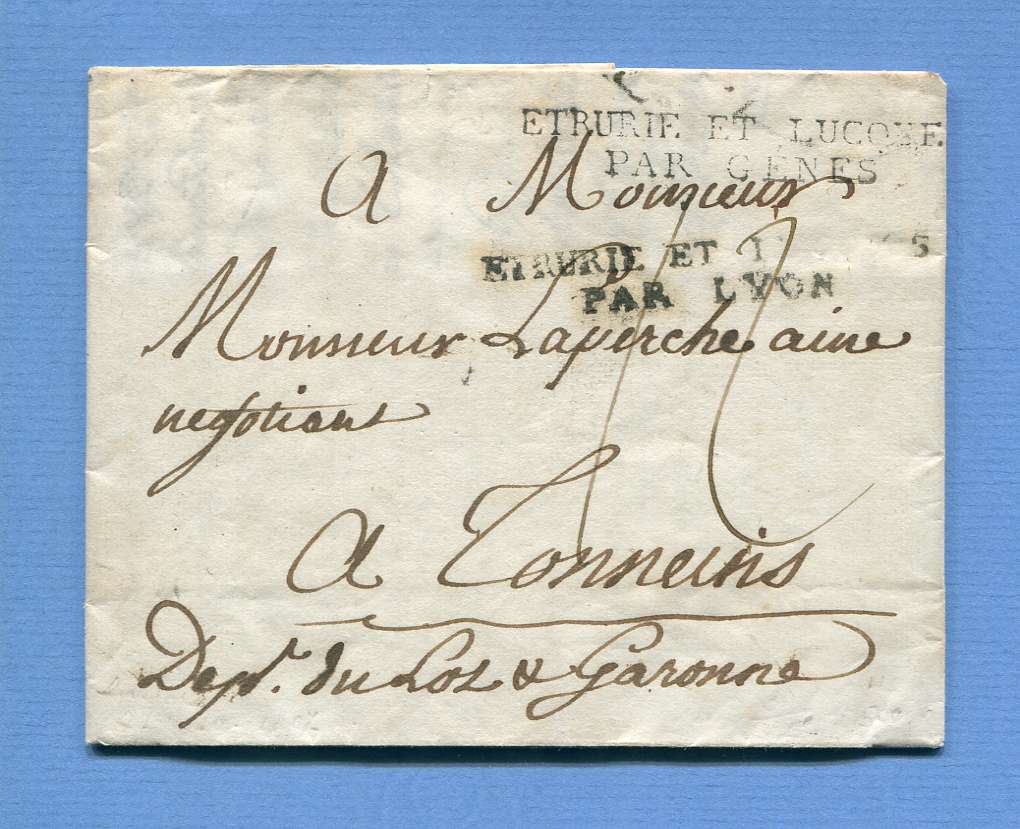 ETRURIE ET LUCQUE.
PAR GENES
A Monsieur
ETRURIE ET
PAR LYON
Monsieur Laperche aine
negotiant
A Tonneins
Dept. du Lot & Garonne